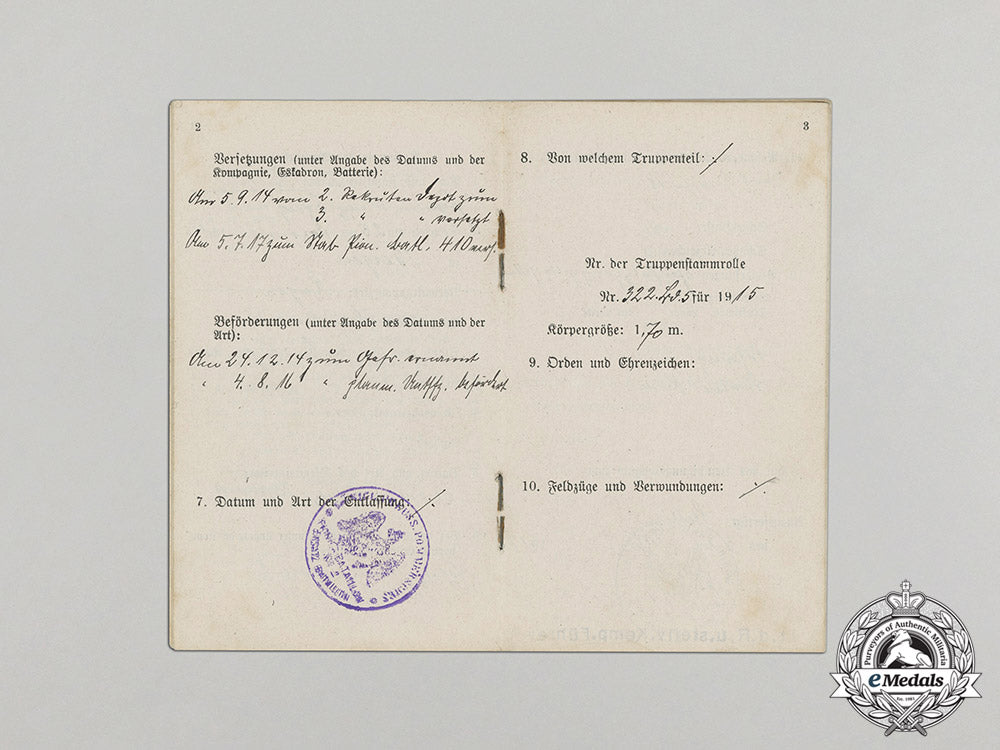 2
Versetzungen (unter Angabe des Datums und der
Kompagnie, Eskadron, Batterie):
Am 5.9.14 vom 2. Rekruten Depot zum
3. " " versetzt
Am 5.7.17 zum Stab Pion. Batl. 410 vers.
Beförderungen (unter Angabe des Datums und der
Art):
Am 24.12.14 zum Gefr. ernannt
" 4.8.16 " Untffz. befördert
7. Datum und Art der Entlassung: ./.
KÖNIGL. PREUSS. POMMERSCHES
PIONIER-BATAILLON
No. 2
3
8. Von welchem Truppenteil: ./.
Nr. der Truppenstammrolle
Nr. 322. Bd. 5 für 1915
Körpergröße: 1,70 m.
9. Orden und Ehrenzeichen:
10. Feldzüge und Verwundungen: ./.
Purveyors of Authentic Militaria
eMedals